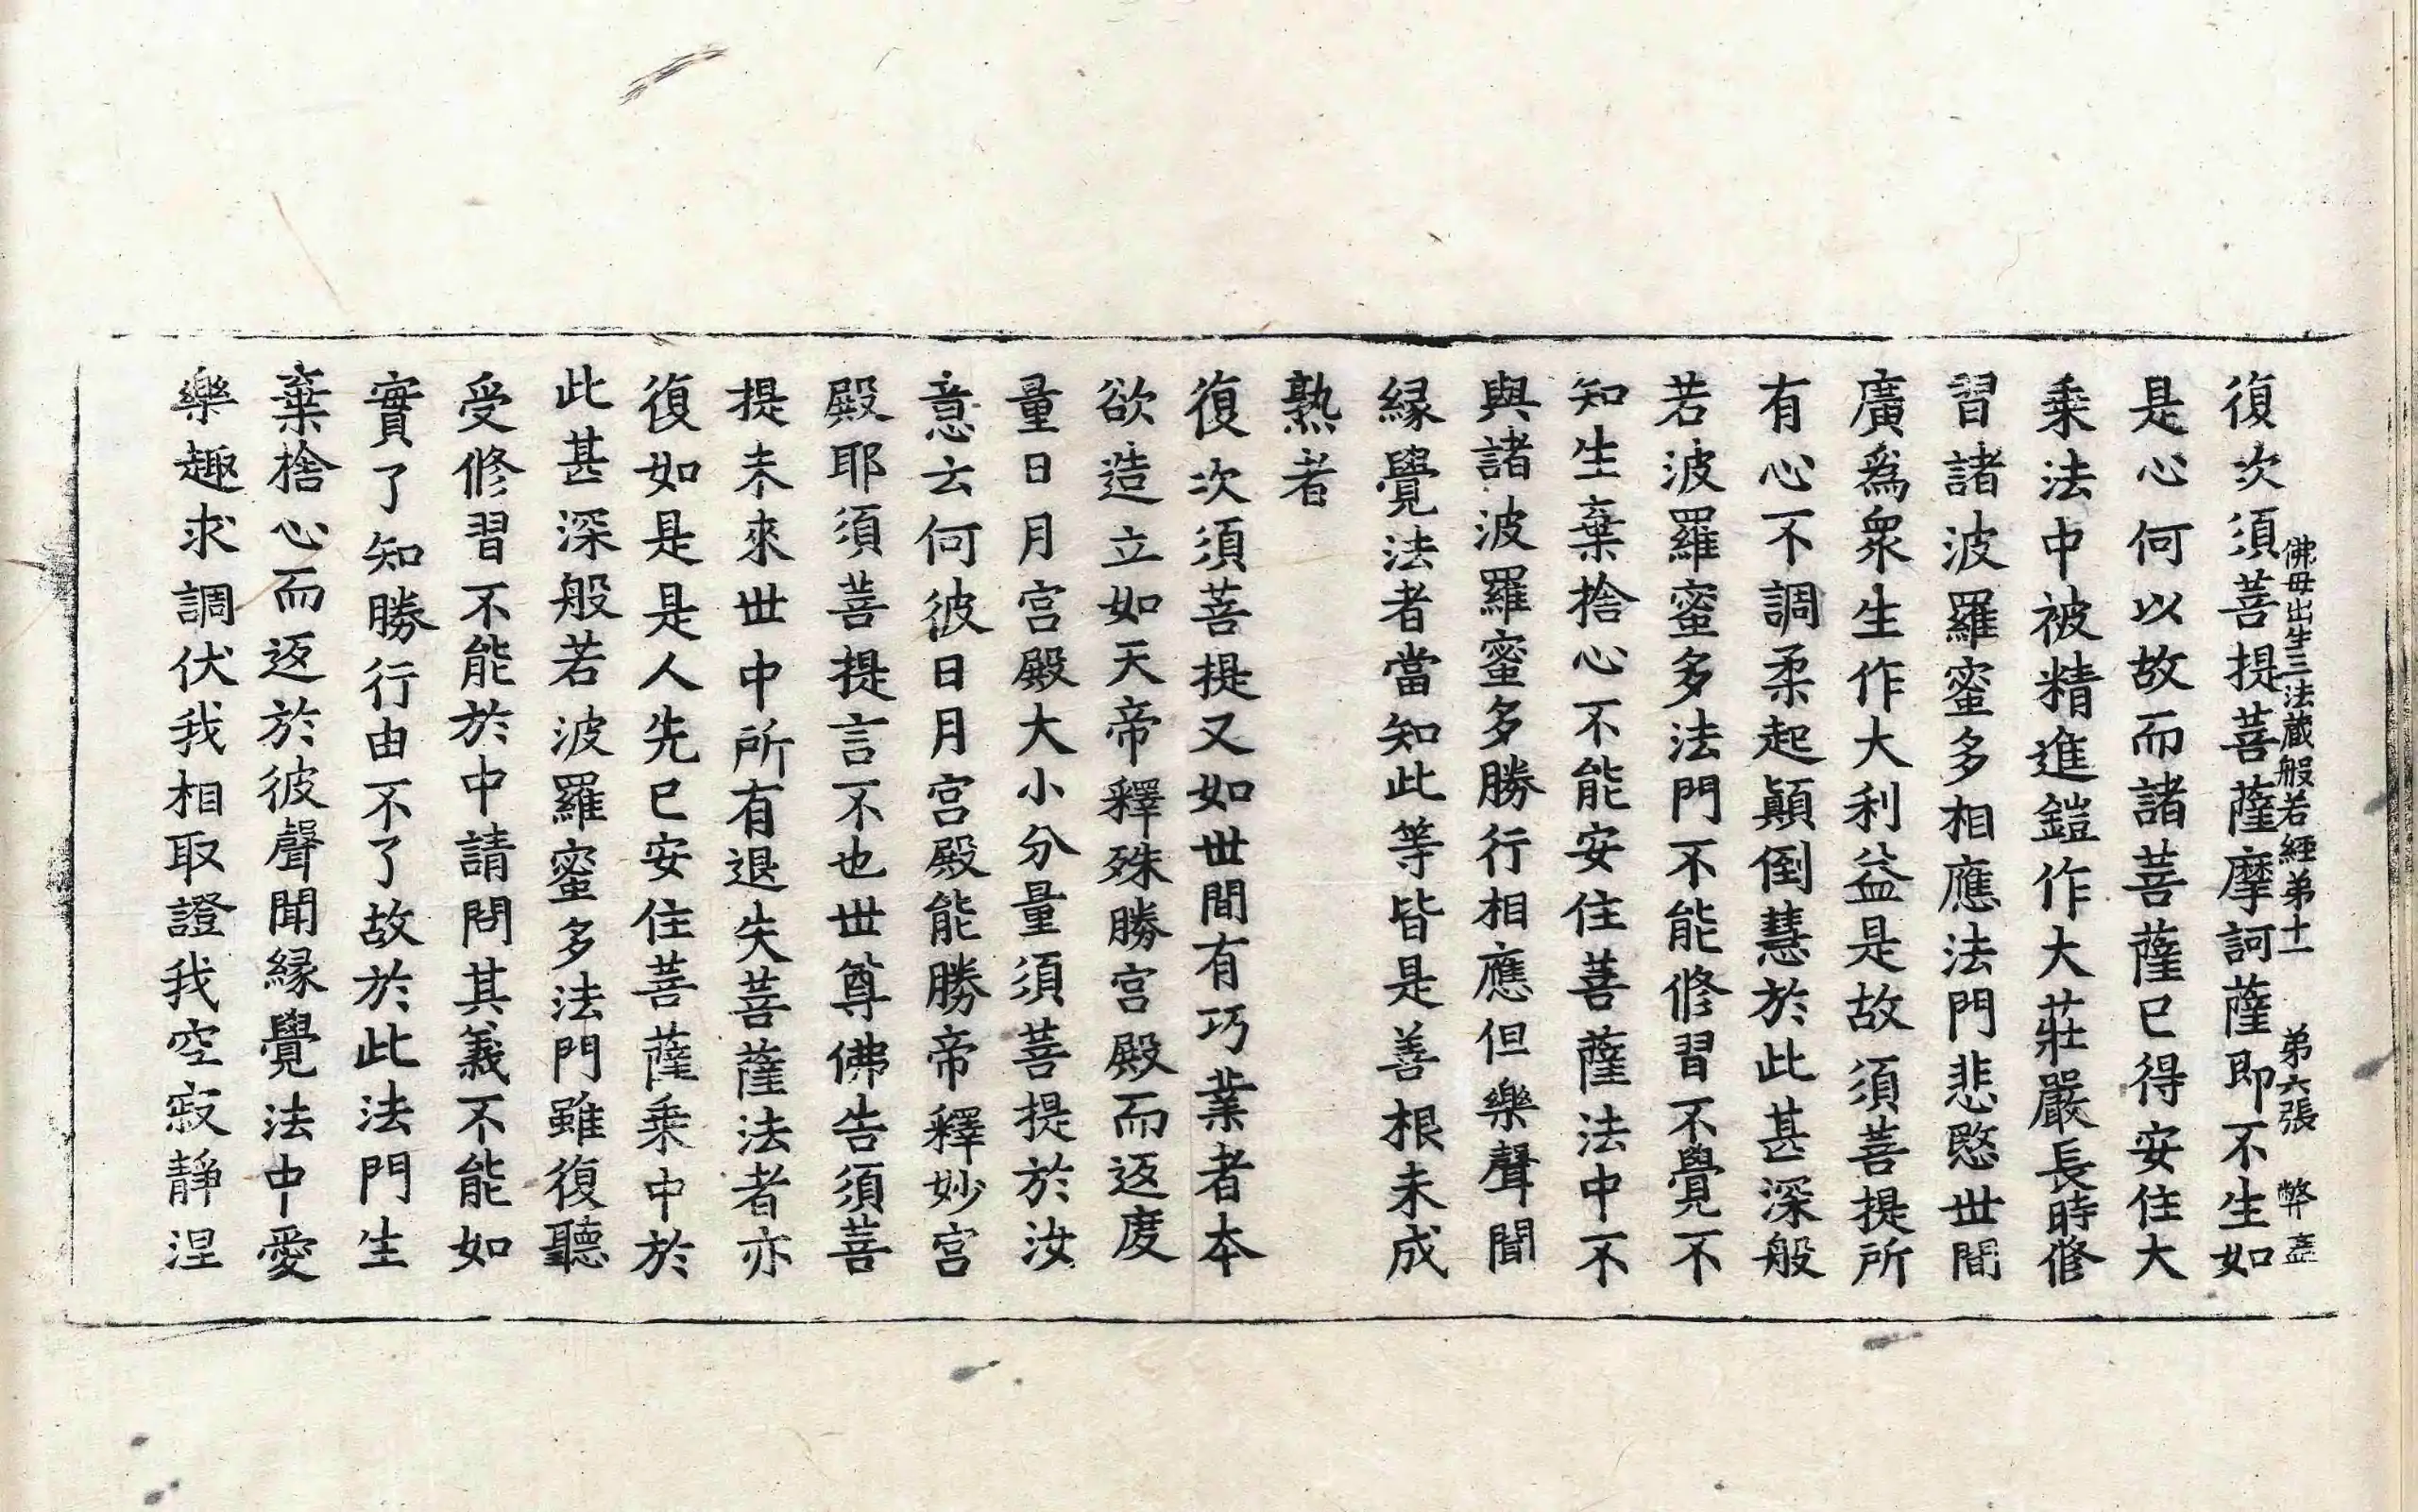 佛母出生三法藏般若經弟十一　弟六張　弊
復次須菩提菩薩摩訶薩即不生如
是心何以故而諸菩薩已得安住大
乘法中被精進鎧作大莊嚴長時修
習諸波羅蜜多相應法門悲愍世間
廣爲衆生作大利益是故須菩提所
有心不調柔起顚倒慧於此甚深般
若波羅蜜多法門不能修習不覺不
知生棄捨心不能安住菩薩法中不
與諸波羅蜜多勝行相應但樂聲聞
緣覺法者當知此等皆是善根未成
熟者
復次須菩提又如世間有巧業者本
欲造立如天帝釋殊勝宮殿而返度
量日月宮殿大小分量須菩提於汝
意云何彼日月宮殿能勝帝釋妙宮
殿耶須菩提言不也世尊佛告須菩
提未來世中所有退失菩薩法者亦
復如是是人先已安住菩薩乘中於
此甚深般若波羅蜜多法門雖復聽
受修習不能於中請問其義不能如
實了知勝行由不了故於此法門生
棄捨心而返於彼聲聞緣覺法中愛
樂趣求調伏我相取證我空寂靜涅